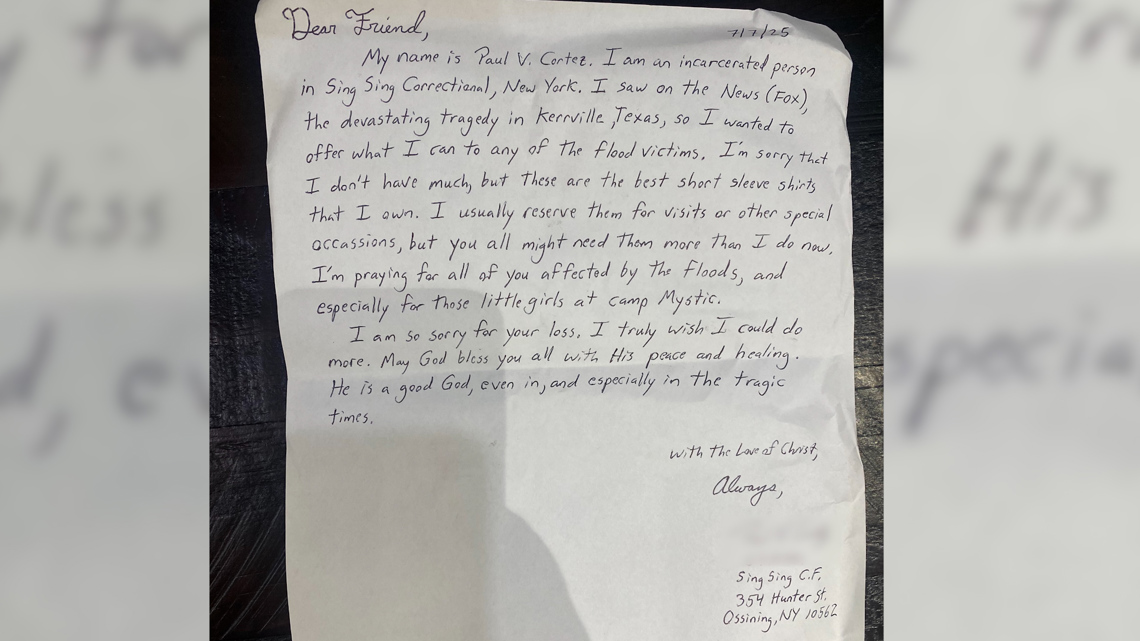 Dear Friend,
7/7/25
My name is Paul V. Cortez. I am an incarcerated person
in Sing Sing Correctional, New York. I saw on the News (Fox),
the devastating tragedy in Kerrville, Texas, so I wanted to
offer what I can to any of the flood victims. I'm sorry that
I don't have much, but these are the best short sleeve shirts
that I own. I usually reserve them for visits or other special
occassions, but you all might need them more than I do now.
I'm praying for all of you affected by the floods, and
especially for those little girls at camp Mystic.
I am so sorry for your loss. I truly wish I could do
more. May God bless you all with His peace and healing.
He is a good God, even in, and especially in the tragic
times.
with the Love of Christ,
Always,
Sing Sing C.F.
354 Hunter St.
Ossining, NY 10562